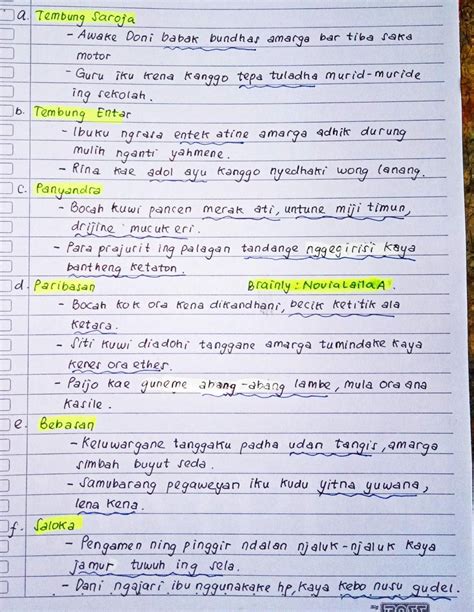 a. Tembung Saroja
- Awake Doni babak bundhas amarga bar tiba saka
motor
- Guru iku kena kanggo tepa tuladha murid-muride
ing sekolah.
b. Tembung Entar
- Ibuku ngrasa entek atine amarga adhik durung
mulih nganti yahmene.
- Rina kae adol ayu kanggo nyedhaki wong lanang.
c. Panyandra
- Bocah kuwi pancen merak ati, untune miji timun,
drijine mucuk eri.
- Para prajurit ing palagan tandange nggegirisi kaya
bantheng ketaton.
d. Paribasan Brainly : NoviaLailaA.
- Bocah kok ora kena dikandhani, becik ketitik ala
ketara.
- Siti kuwi diadohi tanggane amarga tumindake kaya
keres ora ether.
- Paijo kae guneme abang-abang lambe, mula ora ana
kasile.
e. Bebasan
- Keluwargane tanggaku padha udan tangis, amarga
simbah buyut seda.
- Samubarang pegaweyan iku kudu yitna yuwana,
lena kena.
f. Saloka
- Pengamen ning pinggir ndalan njaluk-njaluk kaya
jamur tuwuh ing sela.
- Dani ngajari ibu nggunakake hp, kaya kebo nusu gudel.